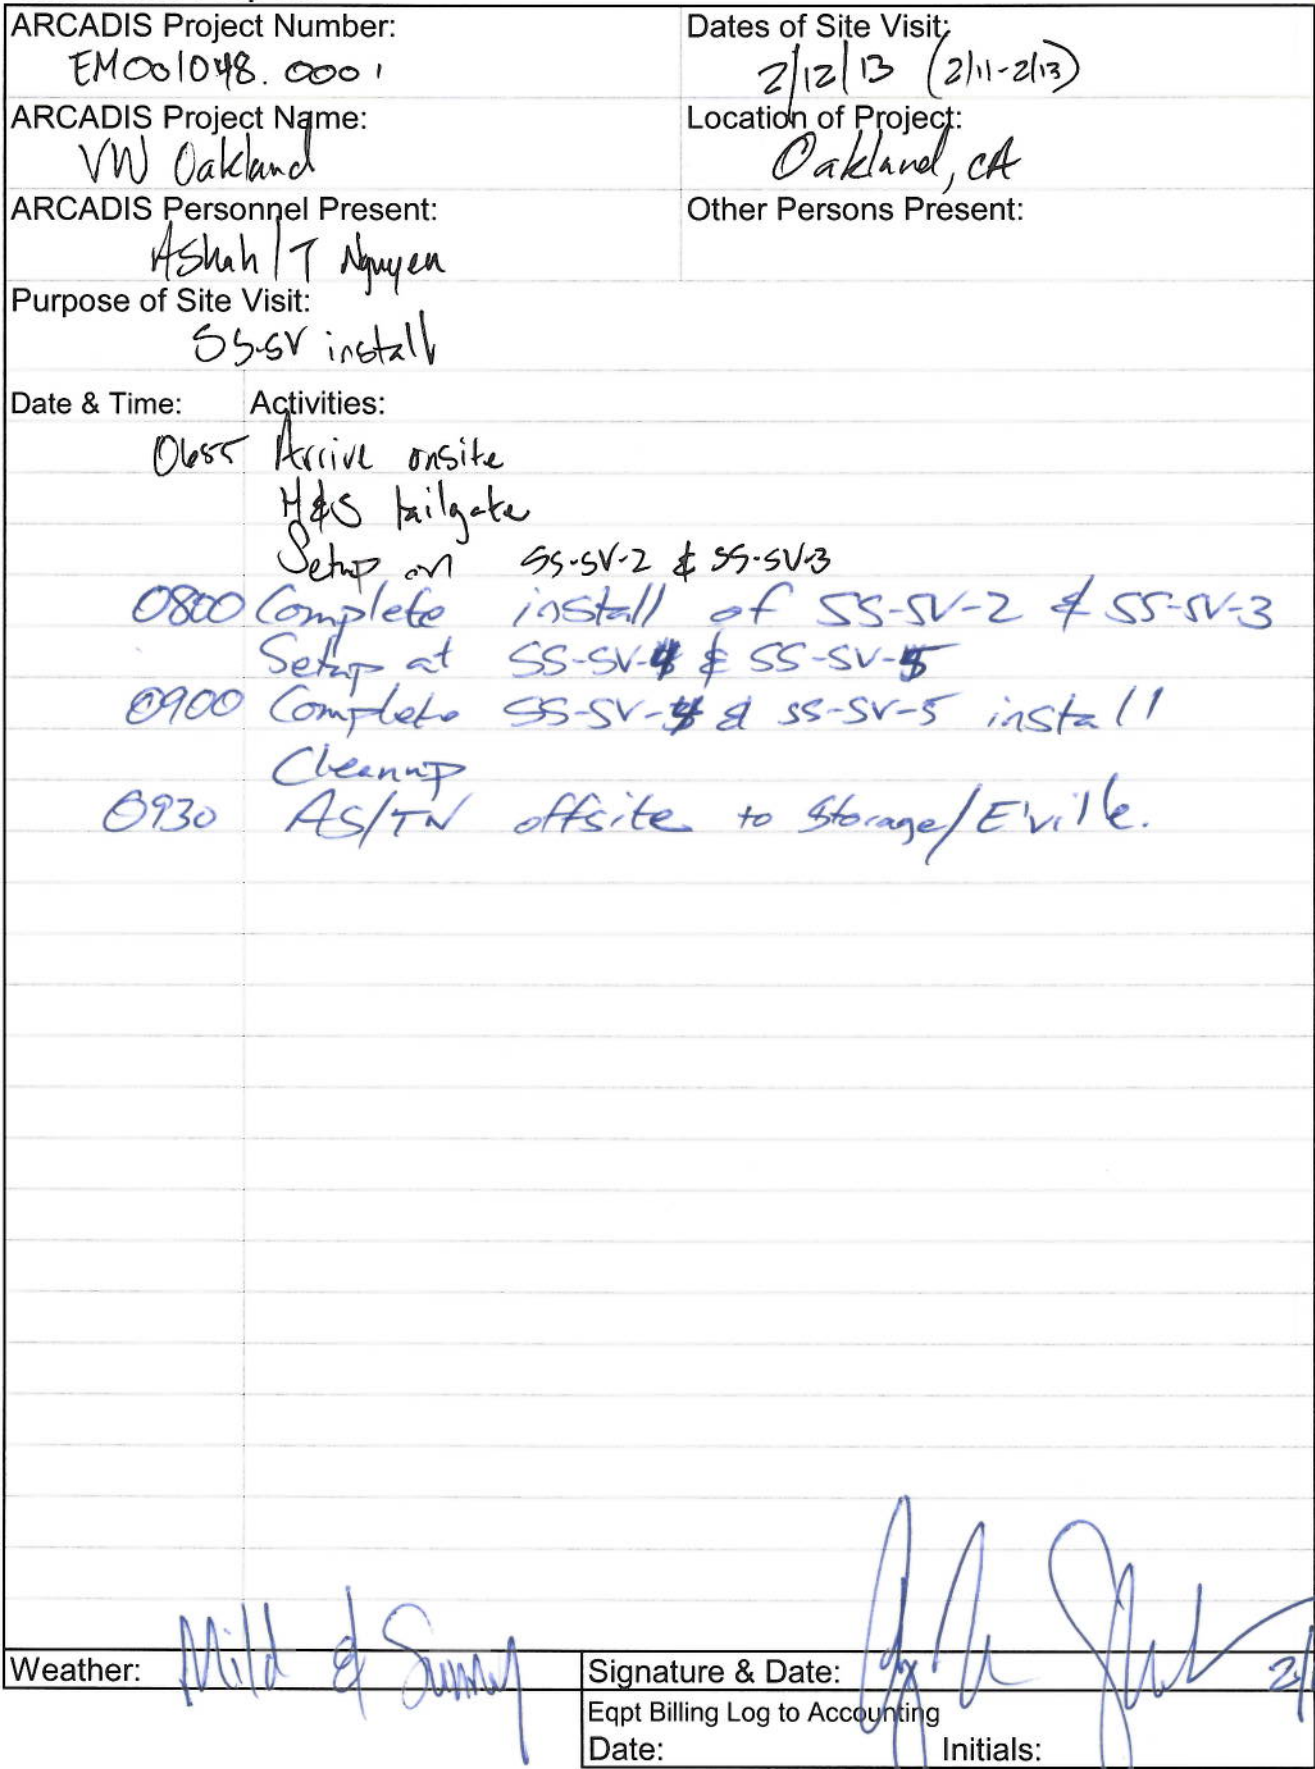 ARCADIS Project Number: Dates of Site Visit:
EM001048.0001 2/12/13 (2/11-2/13)
ARCADIS Project Name: Location of Project:
VW Oakland Oakland, CA
ARCADIS Personnel Present: Other Persons Present:
AShah/T Nguyen
Purpose of Site Visit:
SS-SV install
Date & Time: Activities:
0655 Arrive onsite
H&S tailgate
Setup on SS-SV-2 & SS-SV-3
0800 Complete install of SS-SV-2 & SS-SV-3
Setup at SS-SV-4 & SS-SV-5
0900 Complete SS-SV-4 & SS-SV-5 install
Cleanup
0930 AS/TN offsite to Storage/E'ville.
Weather: Mild & Sunny Signature & Date: 2/
Eqpt Billing Log to Accounting
Date: Initials: